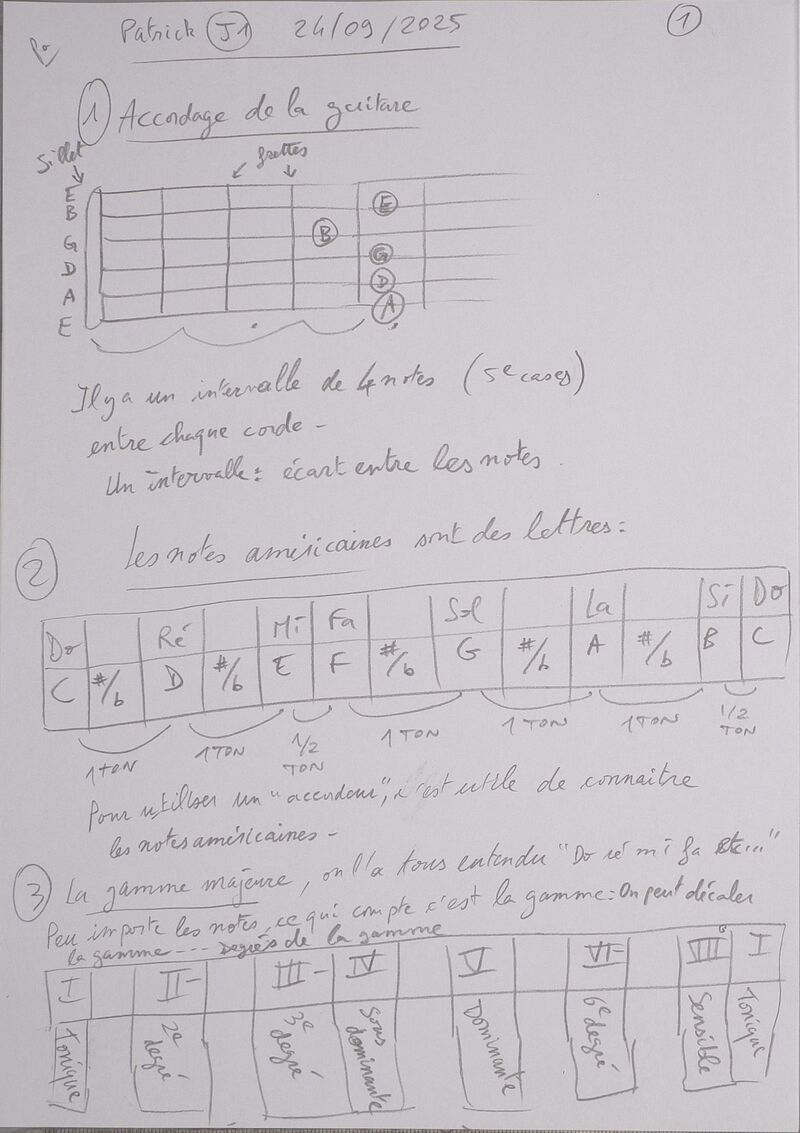 Patrick J1 24/09/2025 1
1 Accordage de la guitare
Sillet frettes
E
B
G
D
A
E
E
B
G
D
A
Il y a un intervalle de 4 notes (5e cases)
entre chaque corde -
Un intervalle = écart entre les notes.
2 Les notes américaines sont des lettres :
Do Ré Mi Fa Sol La Si Do
C #/b D #/b E F #/b G #/b A #/b B C
1 TON 1 TON 1/2 TON 1 TON 1 TON 1 TON 1/2 TON
Pour utiliser un "accordeur", c'est utile de connaitre
les notes américaines -
3 La gamme majeure, on l'a tous entendu "Do ré mi fa etc..."
Peu importe les notes, ce qui compte c'est la gamme : On peut décaler
la gamme --- Degrés de la gamme
I II- III- IV V VI- VII° I
Tonique 2e degré 3e degré Sous dominante Dominante 6e degré Sensible Tonique